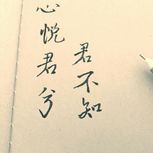 心悦君兮
君不知